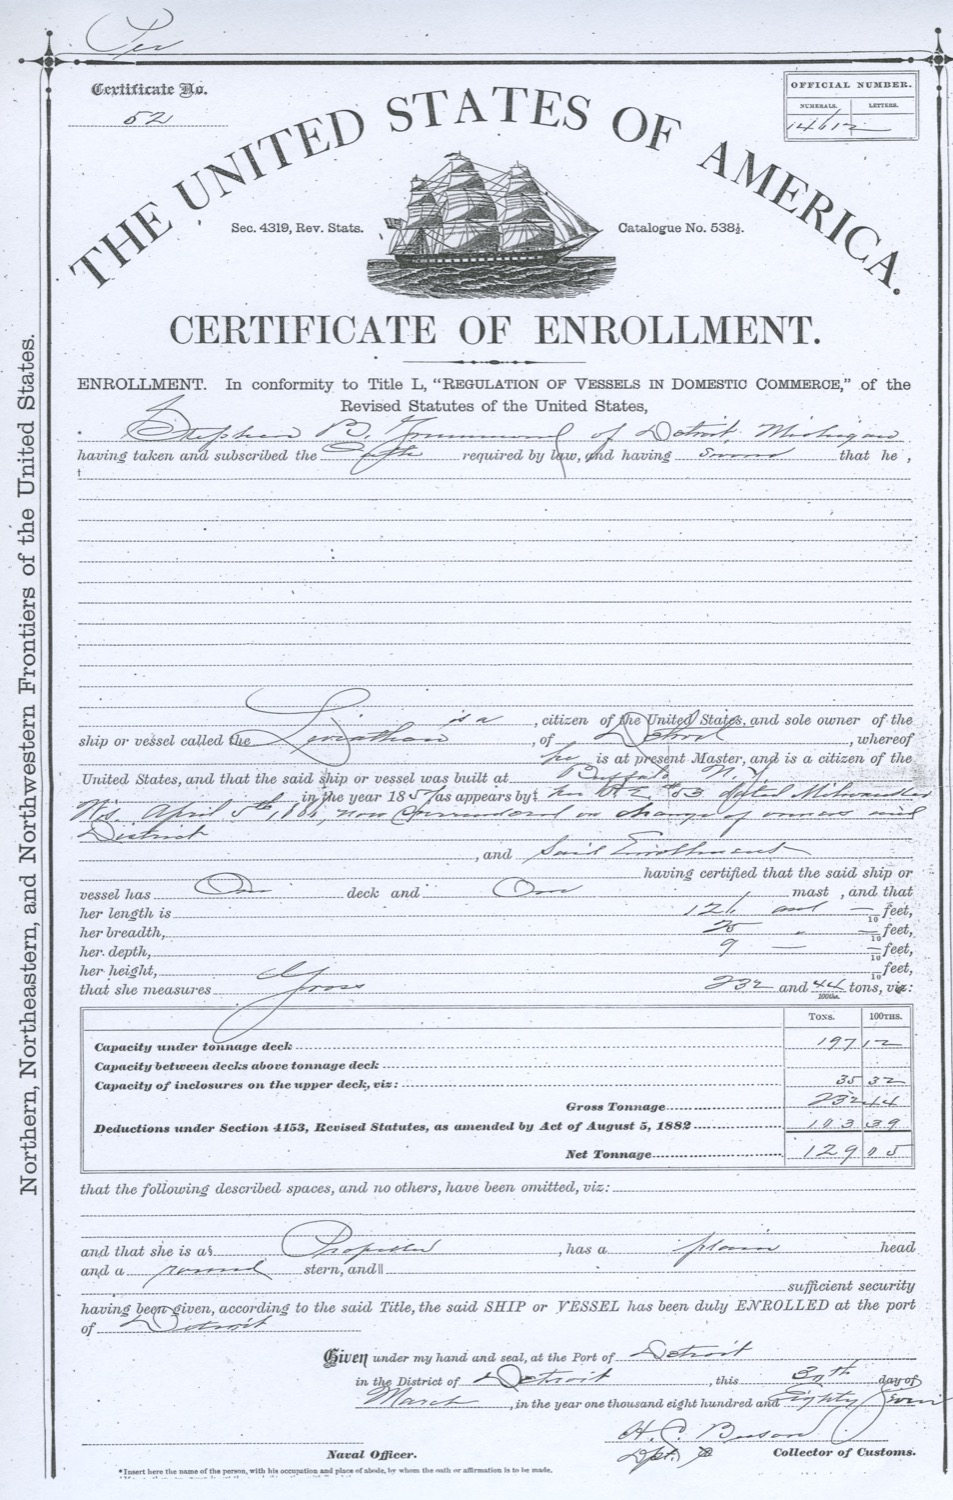 Per
Certificate No.
52
OFFICIAL NUMBER.
NUMERALS. LETTERS.
14612
THE UNITED STATES OF AMERICA.
Sec. 4319, Rev. Stats.
Catalogue No. 538½.
CERTIFICATE OF ENROLLMENT.
ENROLLMENT. In conformity to Title L, "REGULATION OF VESSELS IN DOMESTIC COMMERCE," of the
Revised Statutes of the United States,
* Stephen B. Grummond of Detroit Michigan
having taken and subscribed the Oath required by law, and having sworn that he ,
†
is a , citizen of the United States, and sole owner of the
ship or vessel called the Leviathan , of Detroit , whereof
he is at present Master, and is a citizen of the
United States, and that the said ship or vessel was built at Buffalo N.Y.
in the year 1857 as appears by‡ No 53 dated Milwaukee
Wis. April 5th, now Surrendered on change of owners and
District
, and Said Enrollment
having certified that the said ship or
vessel has One deck and One mast , and that
her length is 126 and — /10 feet,
her breadth, 25 — /10 feet,
her depth, 9 — /10 feet,
her height, /10 feet,
that she measures Gross 232 and 44 /100ths. tons, viz:
TONS. 100THS.
Capacity under tonnage deck 197 12
Capacity between decks above tonnage deck
Capacity of inclosures on the upper deck, viz: 35 32
Gross Tonnage 232 44
Deductions under Section 4153, Revised Statutes, as amended by Act of August 5, 1882 103 39
Net Tonnage 129 05
that the following described spaces, and no others, have been omitted, viz:
and that she is a§ Propeller , has a plain head
and a round stern, and‖
sufficient security
having been given, according to the said Title, the said SHIP or VESSEL has been duly ENROLLED at the port
of Detroit
Given under my hand and seal, at the Port of Detroit
in the District of Detroit , this 30th day of
March , in the year one thousand eight hundred and Eighty Seven
Naval Officer.
Dpt. Collector of Customs.
* Insert here the name of the person, with his occupation and place of abode, by whom the oath or affirmation is to be made.
Northern, Northeastern, and Northwestern Frontiers of the United States.